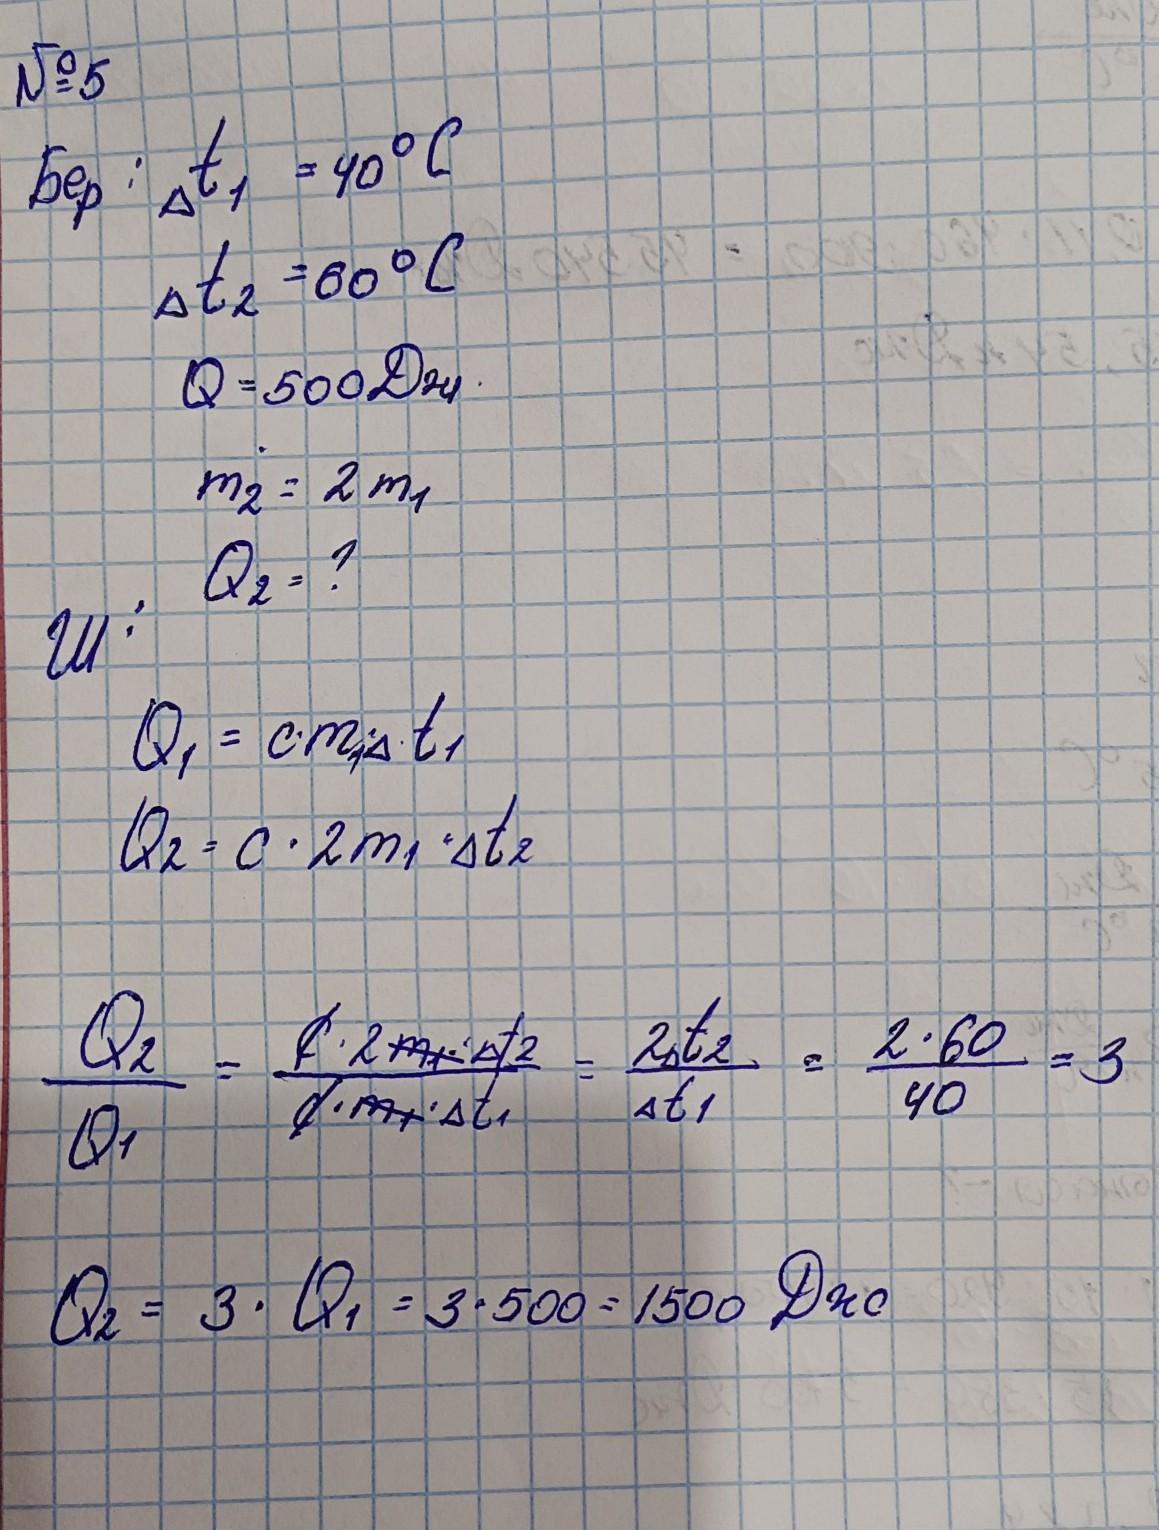 №5
Бер: Δt₁ = 40°C
Δt₂ = 60°C
Q = 500 Дж.
m₂ = 2m₁
Q₂ = ?
Ш:
Q₁ = c·m₁·Δ·t₁
Q₂ = c · 2m₁ · Δt₂
Q₂/Q₁ = c·2m₁·Δt₂/c·m₁·Δt₁ = 2Δt₂/Δt₁ = 2·60/40 = 3
Q₂ = 3 · Q₁ = 3·500 = 1500 Дж